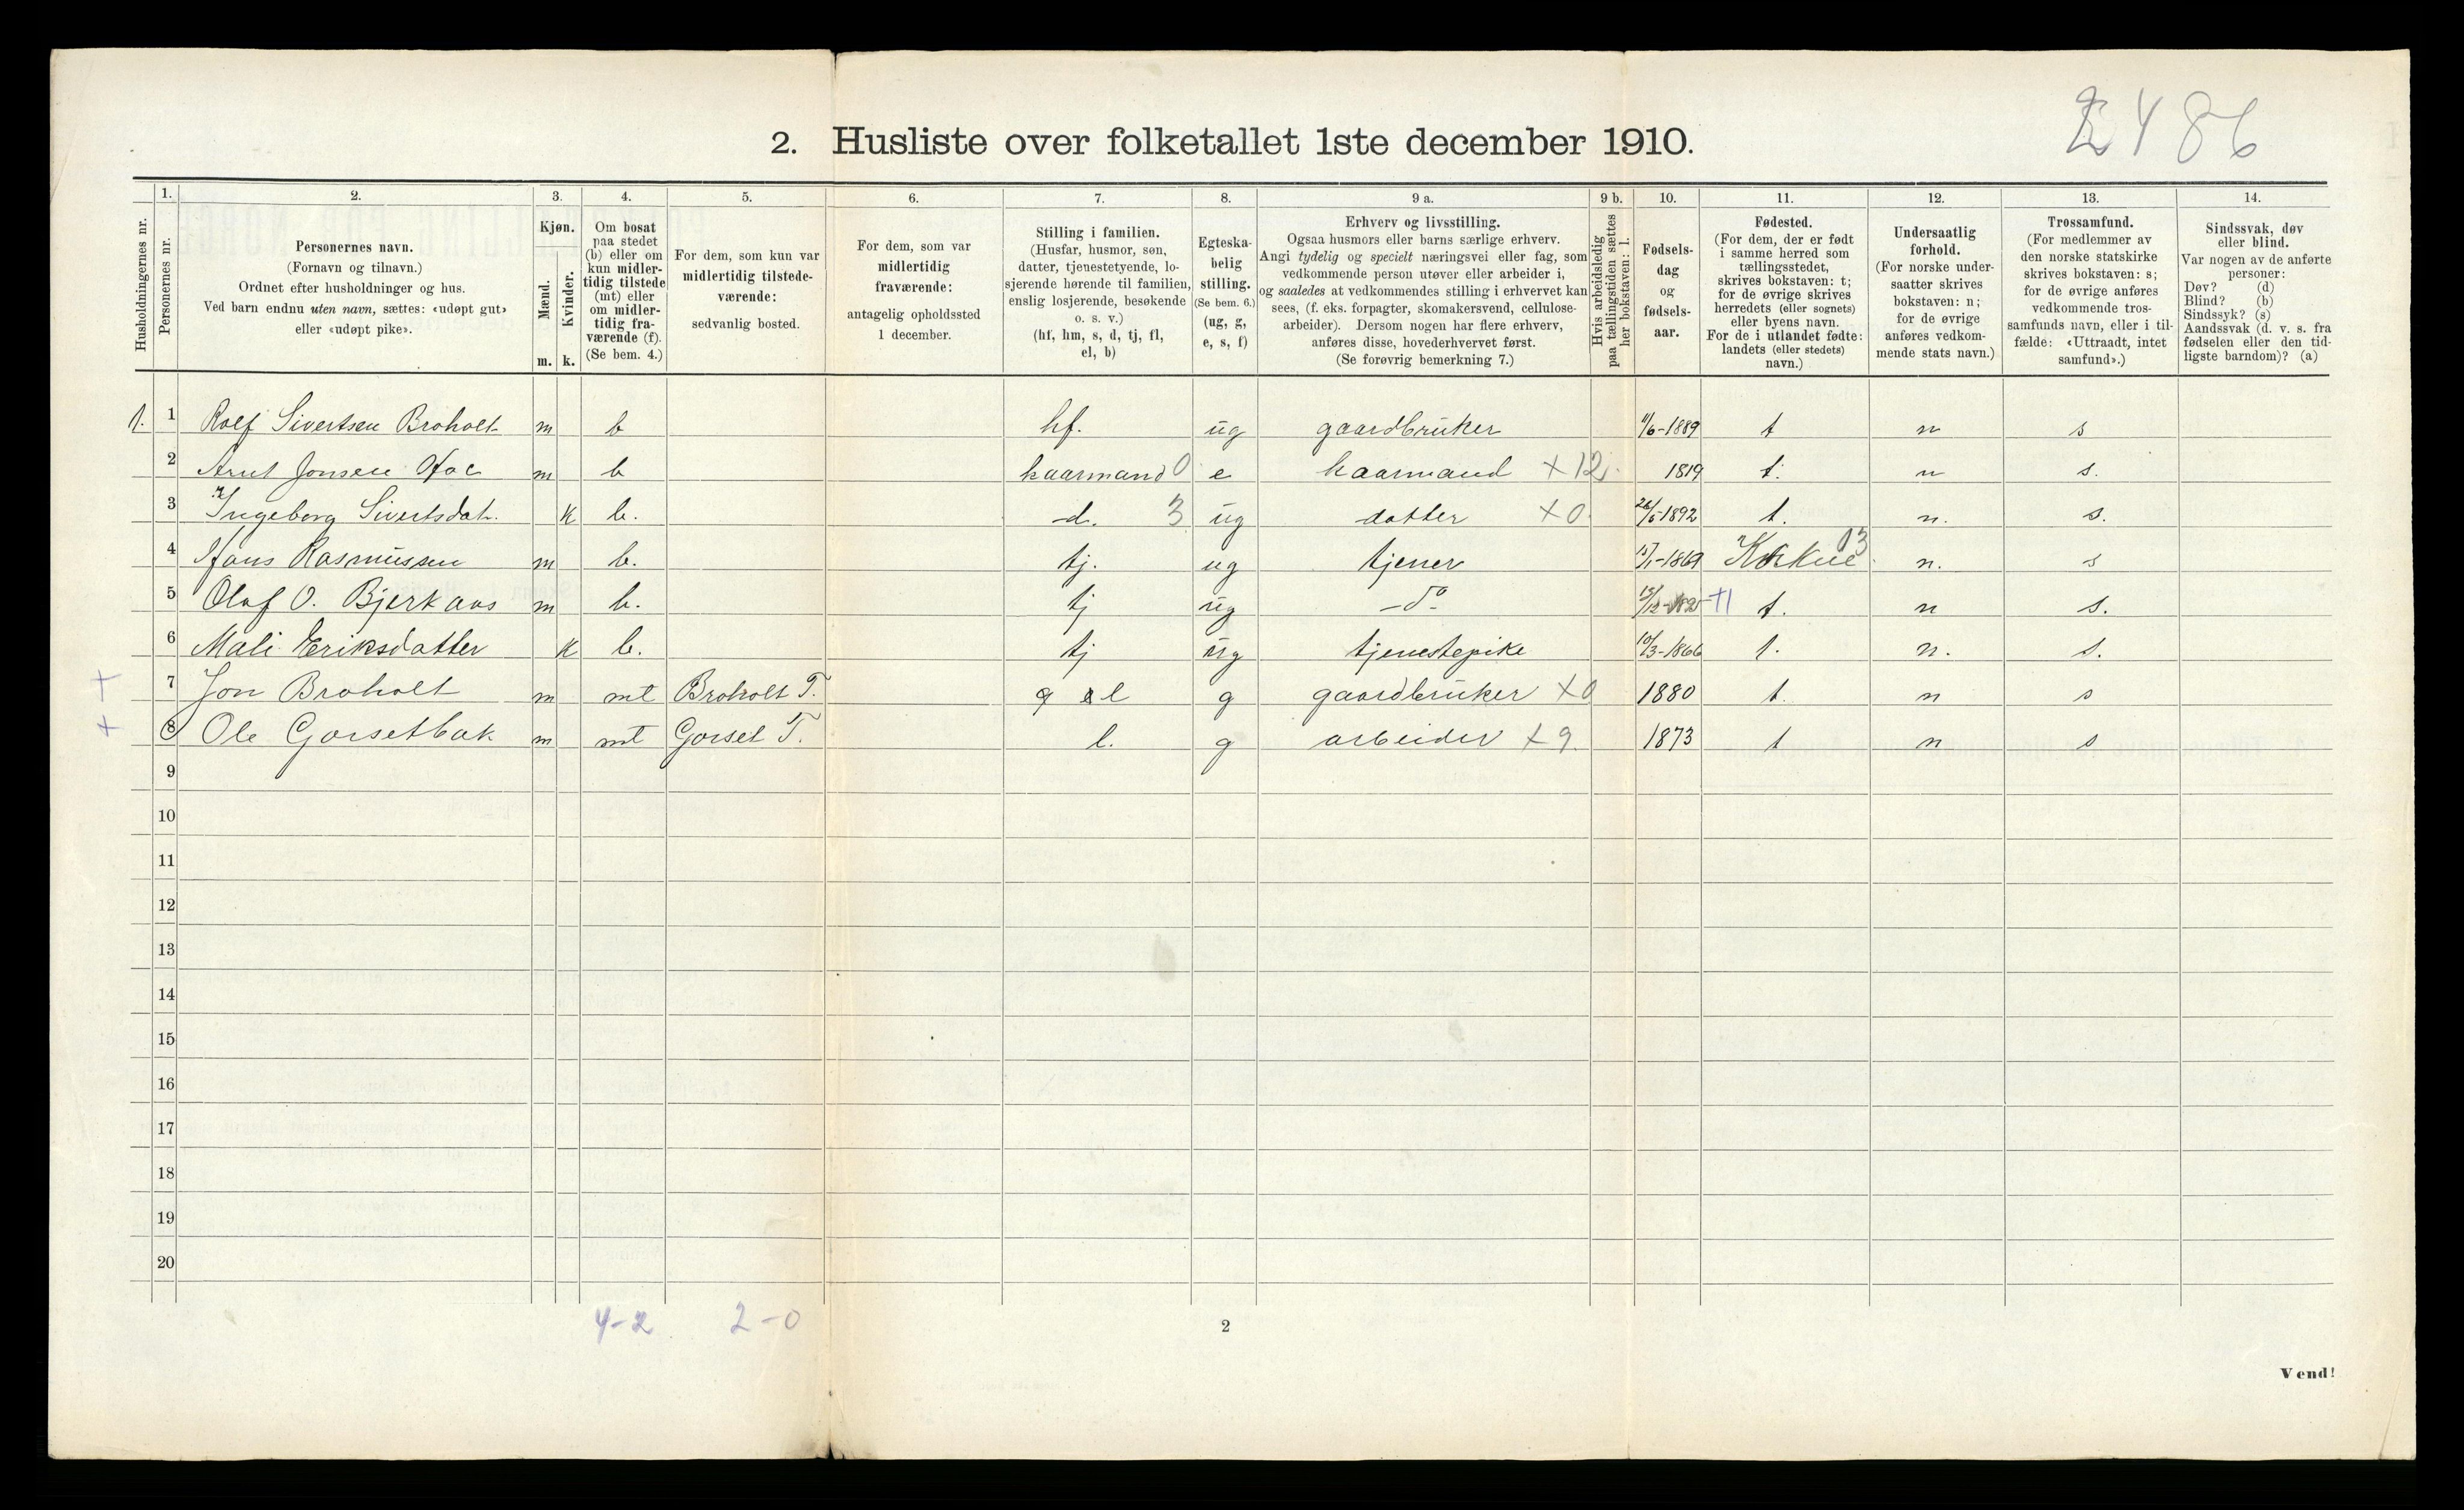 2486
2. Husliste over folketallet 1ste december 1910.
Husholdningernes nr.
1.
Personernes nr.
2.
Personernes navn.
(Fornavn og tilnavn.)
Ordnet efter husholdninger og hus.
Ved barn endnu uten navn, sættes: «udøpt gut»
eller «udøpt pike».
3.
Kjøn.
Mænd.
Kvinder.
m. k.
4.
Om bosat
paa stedet
(b) eller om
kun midler-
tidig tilstede
(mt) eller
om midler-
tidig fra-
værende (f).
(Se bem. 4.)
5.
For dem, som kun var
midlertidig tilstede-
værende:
sedvanlig bosted.
6.
For dem, som var
midlertidig
fraværende:
antagelig opholdssted
1 december.
7.
Stilling i familien.
(Husfar, husmor, søn,
datter, tjenestetyende, lo-
sjerende hørende til familien,
enslig losjerende, besøkende
o. s. v.)
(hf, hm, s, d, tj, fl,
el, b)
8.
Egteska-
belig
stilling.
(Se bem. 6.)
(ug, g,
e, s, f)
9 a.
Erhverv og livsstilling.
Ogsaa husmors eller barns særlige erhverv.
Angi tydelig og specielt næringsvei eller fag, som
vedkommende person utøver eller arbeider i,
og saaledes at vedkommendes stilling i erhvervet kan
sees, (f. eks. forpagter, skomakersvend, cellulose-
arbeider). Dersom nogen har flere erhverv,
anføres disse, hovederhvervet først.
(Se forøvrig bemerkning 7.)
9 b.
Hvis arbeidsledig
paa tællingstiden sættes
her bokstaven: l.
10.
Fødsels-
dag
og
fødsels-
aar.
11.
Fødested.
(For dem, der er født
i samme herred som
tællingsstedet,
skrives bokstaven: t;
for de øvrige skrives
herredets (eller sognets)
eller byens navn.
For de i utlandet fødte:
landets (eller stedets)
navn.)
12.
Undersaatlig
forhold.
(For norske under-
saatter skrives
bokstaven: n;
for de øvrige
anføres vedkom-
mende stats navn.)
13.
Trossamfund.
(For medlemmer av
den norske statskirke
skrives bokstaven: s;
for de øvrige anføres
vedkommende tros-
samfunds navn, eller i til-
fælde: «Uttraadt, intet
samfund».)
14.
Sindssvak, døv
eller blind.
Var nogen av de anførte
personer:
Døv? (d)
Blind? (b)
Sindssyk? (s)
Aandssvak (d. v. s. fra
fødselen eller den tid-
ligste barndom)? (a)
1. 1 Rolf Sivertsen Broholt m b hf. ug gaardbruker 11/6-1889 t n s
2 Arnt Jonsen m b kaarmand 0 e kaarmand +12 1819 t. n s.
3 Ingeborg Sivertsdat. k b. d. 3 ug datter +0 26/5-1892 t. n. s.
4 Hans Rasmussen m b. tj. ug tjener -1869 13 n. s
5 Olaf O. Bjerkaas m b. tj ug -do- +1 t. n s.
6 Mali Eriksdatter k b. tj ug tjenestepike 10/3-1866 t. n. s.
+ 7 Jon Broholt m mt Broholt T. l g gaardbruker +0 1880 t. n s
+ 8 Ole Gorsetbak m mt Gorset T. l. g arbeider +9 1873 t n s
9
10
11
12
13
14
15
16
17
18
19
20
4-2 2-0
2
Vend!